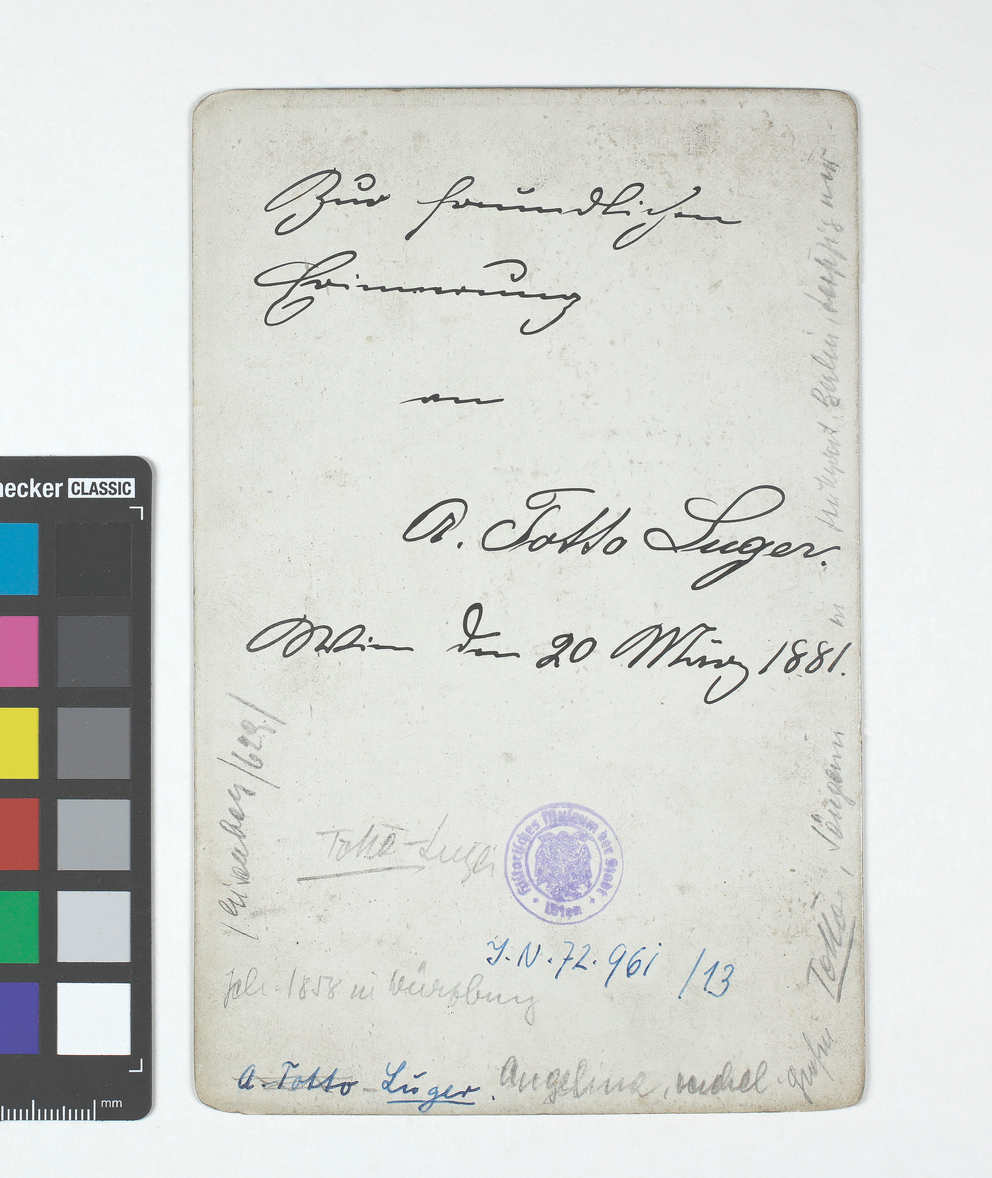 Zur freundlichen
Erinnerung
an
A. Totto Luger.
Wien den 20 März 1881.
Totto-Luger
Historisches Museum der Stadt Wien
J.N. 72.961 /13
geb. 1858 in Würzburg
A. Totto-Luger. Angelina,
/Eisenberg/629/
Totto, Sängerin in
Berlin, Leipzig
necker CLASSIC
mm